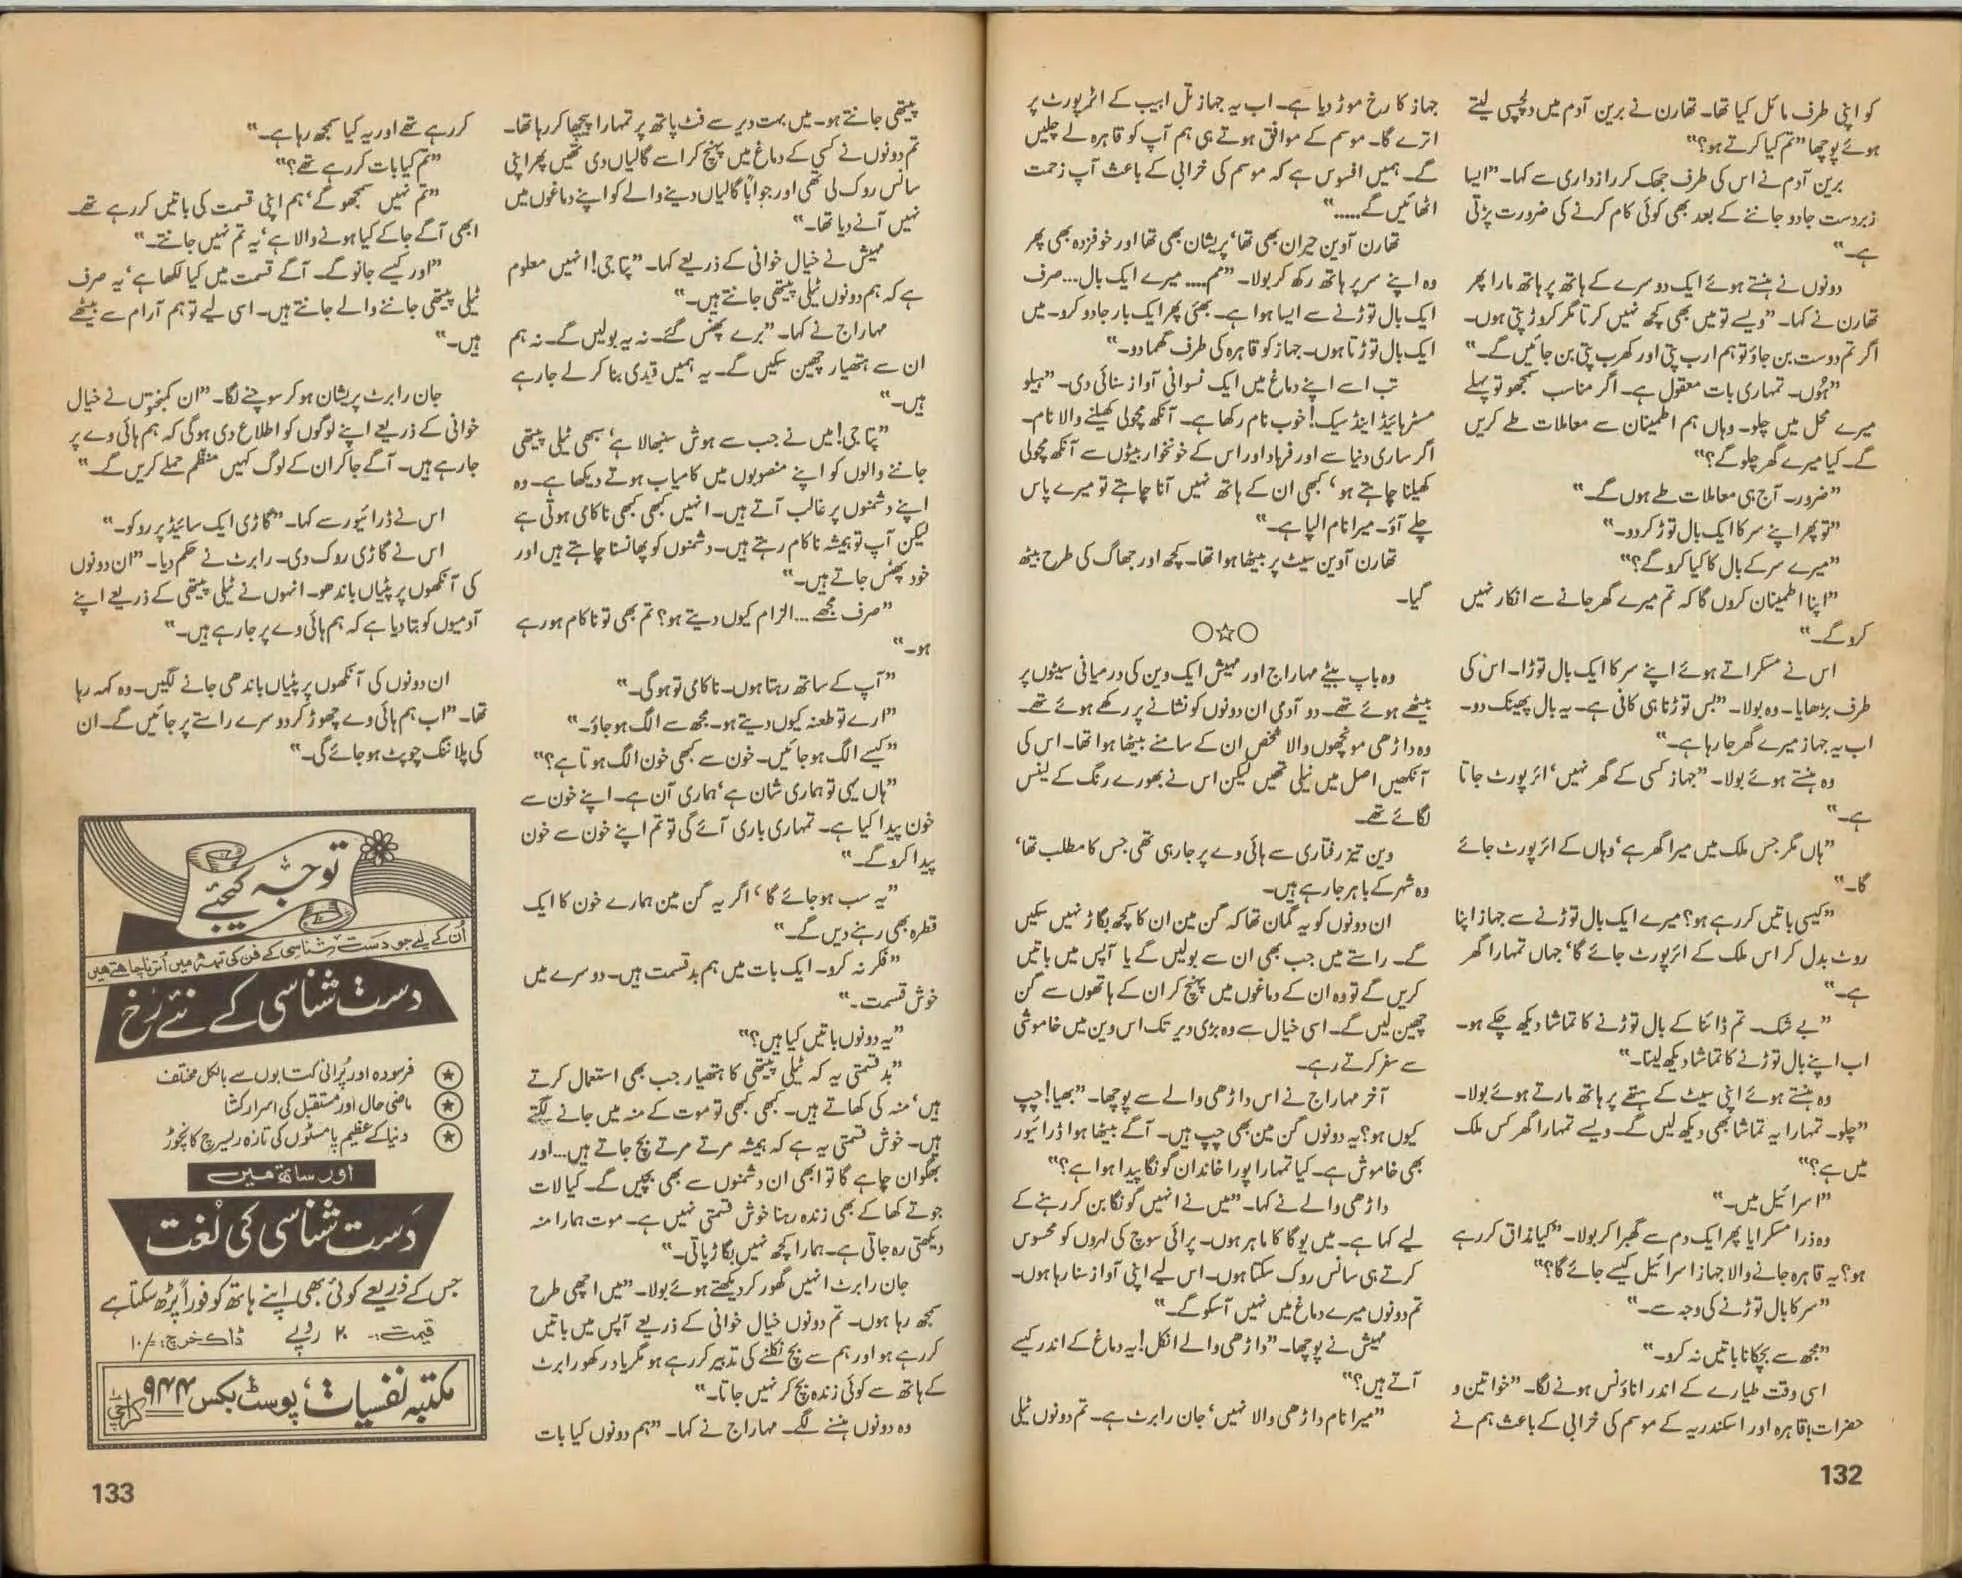 کو اپنی طرف مائل کیا تھا۔ تھارن نے برین آدم میں دلچسپی لیتے
ہوئے پوچھا "تم کیا کرتے ہو؟"
برین آدم نے اس کی طرف جھک کر رازداری سے کہا۔ "ایسا
زبردست جادو جاننے کے بعد بھی کوئی کام کرنے کی ضرورت پڑتی
ہے۔"
دونوں نے ہنستے ہوئے ایک دوسرے کے ہاتھ پر ہاتھ مارا پھر
تھارن نے کہا۔ "ویسے تو میں بھی کچھ نہیں کرتا مگر کروڑ پتی ہوں۔
اگر تم دوست بن جاؤ تو ہم ارب پتی اور کھرب پتی بن جائیں گے۔"
"ہُوں۔ تمہاری بات معقول ہے۔ اگر مناسب سمجھو تو پہلے
میرے محل میں چلو۔ وہاں ہم اطمینان سے معاملات طے کریں
گے۔ کیا میرے گھر چلو گے؟"
"ضرور۔ آج ہی معاملات طے ہوں گے۔"
"تو پھر اپنے سر کا ایک بال توڑ کر دو۔"
"میرے سر کے بال کا کیا کرو گے؟"
"اپنا اطمینان کروں گا کہ تم میرے گھر جانے سے انکار نہیں
کرو گے۔"
اس نے مسکراتے ہوئے اپنے سر کا ایک بال توڑا۔ اس کی
طرف بڑھایا۔ وہ بولا۔ "بس توڑنا ہی کافی ہے۔ یہ بال پھینک دو۔
اب یہ جہاز میرے گھر جا رہا ہے۔"
وہ ہنستے ہوئے بولا۔ "جہاز کسی کے گھر نہیں' ائرپورٹ جاتا
ہے۔"
"ہاں مگر جس ملک میں میرا گھر ہے' وہاں کے ائرپورٹ جائے
گا۔"
"کیسی باتیں کر رہے ہو؟ میرے ایک بال توڑنے سے جہاز اپنا
روٹ بدل کر اس ملک کے ائرپورٹ جائے گا' جہاں تمہارا گھر
ہے۔"
"بے شک۔ تم ڈائنا کے بال توڑنے کا تماشا دیکھ چکے ہو۔
اب اپنے بال توڑنے کا تماشا دیکھ لینا۔"
وہ ہنستے ہوئے اپنی سیٹ کے ہتھے پر ہاتھ مارتے ہوئے بولا۔
"چلو۔ تمہارا یہ تماشا بھی دیکھ لیں گے۔ ویسے تمہارا گھر کس ملک
میں ہے؟"
"اسرائیل میں۔"
وہ ذرا مسکرایا پھر ایک دم سے گھبرا کر بولا۔ "کیا مذاق کر رہے
ہو؟ یہ قاہرہ جانے والا جہاز اسرائیل کیسے جائے گا؟"
"سر کا بال توڑنے کی وجہ سے۔"
"مجھ سے بچکانا باتیں نہ کرو۔"
اسی وقت طیارے کے اندر اناؤنس ہونے لگا۔ "خواتین و
حضرات! قاہرہ اور اسکندریہ کے موسم کی خرابی کے باعث ہم نے
جہاز کا رخ موڑ دیا ہے۔ اب یہ جہاز تل ابیب کے ائرپورٹ پر
اترے گا۔ موسم کے موافق ہوتے ہی ہم آپ کو قاہرہ لے چلیں
گے۔ ہمیں افسوس ہے کہ موسم کی خرابی کے باعث آپ زحمت
اٹھائیں گے....."
تھارن آوین حیران بھی تھا' پریشان بھی تھا اور خوفزدہ بھی پھر
وہ اپنے سر پر ہاتھ رکھ کر بولا۔ "مم.... میرے ایک بال... صرف
ایک بال توڑنے سے ایسا ہوا ہے۔ بھئی پھر ایک بار جادو کرو۔ میں
ایک بال توڑتا ہوں۔ جہاز کو قاہرہ کی طرف گھما دو۔"
تب اسے اپنے دماغ میں ایک نسوانی آواز سنائی دی۔ "ہیلو
مسٹر ہائیڈ اینڈ سیک! خوب نام رکھا ہے۔ آنکھ مچولی کھیلنے والا نام۔
اگر ساری دنیا سے اور فرہاد اور اس کے خونخوار بیٹوں سے آنکھ مچولی
کھیلنا چاہتے ہو' کبھی ان کے ہاتھ نہیں آنا چاہتے تو میرے پاس
چلے آؤ۔ میرا نام الپا ہے۔"
تھارن آوین سیٹ پر بیٹھا ہوا تھا۔ کچھ اور جھاگ کی طرح بیٹھ
گیا۔
○☆○
وہ باپ بیٹے مہاراج اور مہیش ایک وین کی درمیانی سیٹوں پر
بیٹھے ہوئے تھے۔ دو آدمی ان دونوں کو نشانے پر رکھے ہوئے تھے۔
وہ داڑھی مونچھوں والا شخص ان کے سامنے بیٹھا ہوا تھا۔ اس کی
آنکھیں اصل میں نیلی تھیں لیکن اس نے بھورے رنگ کے لینس
لگائے تھے۔
وین تیز رفتاری سے ہائی وے پر جا رہی تھی جس کا مطلب تھا'
وہ شہر کے باہر جا رہے ہیں۔
ان دونوں کو یہ گمان تھا کہ گن مین ان کا کچھ بگاڑ نہیں سکیں
گے۔ راستے میں جب بھی ان سے بولیں گے یا آپس میں باتیں
کریں گے تو وہ ان کے دماغوں میں پہنچ کر ان کے ہاتھوں سے گن
چھین لیں گے۔ اسی خیال سے وہ بڑی دیر تک اس وین میں خاموشی
سے سفر کرتے رہے۔
آخر مہاراج نے اس داڑھی والے سے پوچھا۔ "بھیا! چپ
کیوں ہو؟ یہ دونوں گن مین بھی چپ ہیں۔ آگے بیٹھا ہوا ڈرائیور
بھی خاموش ہے۔ کیا تمہارا پورا خاندان گونگا پیدا ہوا ہے؟"
داڑھی والے نے کہا۔ "میں نے انہیں گونگا بن کر رہنے کے
لیے کہا ہے۔ میں یوگا کا ماہر ہوں۔ پرائی سوچ کی لہروں کو محسوس
کرتے ہی سانس روک سکتا ہوں۔ اس لیے اپنی آواز سنا رہا ہوں۔
تم دونوں میرے دماغ میں نہیں آسکو گے۔"
مہیش نے پوچھا۔ "داڑھی والے انکل! یہ دماغ کے اندر کیسے
آتے ہیں؟"
"میرا نام داڑھی والا نہیں' جان رابرٹ ہے۔ تم دونوں ٹیلی
132
پیتھی جانتے ہو۔ میں بہت دیر سے فٹ پاتھ پر تمہارا پیچھا کر رہا تھا۔
تم دونوں نے کسی کے دماغ میں پہنچ کر اسے گالیاں دی تھیں پھر اپنی
سانس روک لی تھی اور جواباً گالیاں دینے والے کو اپنے دماغوں میں
نہیں آنے دیا تھا۔"
مہیش نے خیال خوانی کے ذریعے کہا۔ "پتا جی! انہیں معلوم
ہے کہ ہم دونوں ٹیلی پیتھی جانتے ہیں۔"
مہاراج نے کہا۔ "برے پھنس گئے۔ نہ یہ بولیں گے۔ نہ ہم
ان سے ہتھیار چھین سکیں گے۔ یہ ہمیں قیدی بنا کر لے جا رہے
ہیں۔"
"پتا جی! میں نے جب سے ہوش سنبھالا ہے' سبھی ٹیلی پیتھی
جاننے والوں کو اپنے منصوبوں میں کامیاب ہوتے دیکھا ہے۔ وہ
اپنے دشمنوں پر غالب آتے ہیں۔ انہیں کبھی کبھی ناکامی ہوتی ہے
لیکن آپ تو ہمیشہ ناکام رہتے ہیں۔ دشمنوں کو پھانسنا چاہتے ہیں اور
خود پھنس جاتے ہیں۔"
"صرف مجھے... الزام کیوں دیتے ہو؟ تم بھی تو ناکام ہو رہے
ہو۔"
"آپ کے ساتھ رہتا ہوں۔ ناکامی تو ہوگی۔"
"ارے تو طعنہ کیوں دیتے ہو۔ مجھ سے الگ ہو جاؤ۔"
"کیسے الگ ہو جائیں۔ خون سے کبھی خون الگ ہوتا ہے؟"
"ہاں یہی تو ہماری شان ہے' ہماری آن ہے۔ اپنے خون سے
خون پیدا کیا ہے۔ تمہاری باری آئے گی تو تم اپنے خون سے خون
پیدا کرو گے۔"
"یہ سب ہو جائے گا' اگر یہ گن مین ہمارے خون کا ایک
قطرہ بھی رہنے دیں گے۔"
"فکر نہ کرو۔ ایک بات میں ہم بدقسمت ہیں۔ دوسرے میں
خوش قسمت۔"
"یہ دونوں باتیں کیا ہیں؟"
"بد قسمتی یہ کہ ٹیلی پیتھی کا ہتھیار جب بھی استعمال کرتے
ہیں' منہ کی کھاتے ہیں۔ کبھی کبھی تو موت کے منہ میں جانے لگتے
ہیں۔ خوش قسمتی یہ ہے کہ ہمیشہ مرتے مرتے بچ جاتے ہیں... اور
بھگوان چاہے گا تو ابھی ان دشمنوں سے بھی بچیں گے۔ کیا لات
جوتے کھا کے بھی زندہ رہنا خوش قسمتی نہیں ہے۔ موت ہمارا منہ
دیکھتی رہ جاتی ہے۔ ہمارا کچھ نہیں بگاڑ پاتی۔"
جان رابرٹ انہیں گھور کر دیکھتے ہوئے بولا۔ "میں اچھی طرح
سمجھ رہا ہوں۔ تم دونوں خیال خوانی کے ذریعے آپس میں باتیں
کر رہے ہو اور ہم سے بچ نکلنے کی تدبیر کر رہے ہو مگر یاد رکھو رابرٹ
کے ہاتھ سے کوئی زندہ بچ کر نہیں جاتا۔"
وہ دونوں ہنسنے لگے۔ مہاراج نے کہا۔ "ہم دونوں کیا بات
کر رہے تھے اور یہ کیا سمجھ رہا ہے۔"
"تم کیا بات کر رہے تھے؟"
"تم نہیں سمجھو گے' ہم اپنی قسمت کی باتیں کر رہے تھے۔
ابھی آگے جا کے کیا ہونے والا ہے' یہ تم نہیں جانتے۔"
"اور کیسے جانو گے۔ آگے قسمت میں کیا لکھا ہے' یہ صرف
ٹیلی پیتھی جاننے والے جانتے ہیں۔ اسی لیے تو ہم آرام سے بیٹھے
ہیں۔"
جان رابرٹ پریشان ہو کر سوچنے لگا۔ "ان کمبختوں نے خیال
خوانی کے ذریعے اپنے لوگوں کو اطلاع دی ہوگی کہ ہم ہائی وے پر
جا رہے ہیں۔ آگے جا کر ان کے لوگ کہیں منظم حملے کریں گے۔"
اس نے ڈرائیور سے کہا۔ "گاڑی ایک سائیڈ پر روکو۔"
اس نے گاڑی روک دی۔ رابرٹ نے حکم دیا۔ "ان دونوں
کی آنکھوں پر پٹیاں باندھو۔ انہوں نے ٹیلی پیتھی کے ذریعے اپنے
آدمیوں کو بتا دیا ہے کہ ہم ہائی وے پر جا رہے ہیں۔"
ان دونوں کی آنکھوں پر پٹیاں باندھی جانے لگیں۔ وہ کہہ رہا
تھا۔ "اب ہم ہائی وے چھوڑ کر دوسرے راستے پر جائیں گے۔ ان
کی پلاننگ چوپٹ ہو جائے گی۔"
توجہ کیجئے
اُن کے لیے جو دست شناسی کے فن کی تہہ میں اُترنا چاہتے ہیں
دست شناسی کے نئے رُخ
فرسودہ اور پُرانی کتابوں سے بالکل مختلف
ماضی حال اور مستقبل کی اسرار کشا
دنیا کے عظیم پامسٹوں کی تازہ ریسرچ کا نچوڑ
اور ساتھ میں
دست شناسی کی لُغت
جس کے ذریعے کوئی بھی اپنے ہاتھ کو فوراً پڑھ سکتا ہے
قیمت:۔ ۲۰ روپے ڈاک خرچ: ۱۰/=
مکتبہ نفسیات، پوسٹ بکس ۹۴۴ کراچی
133